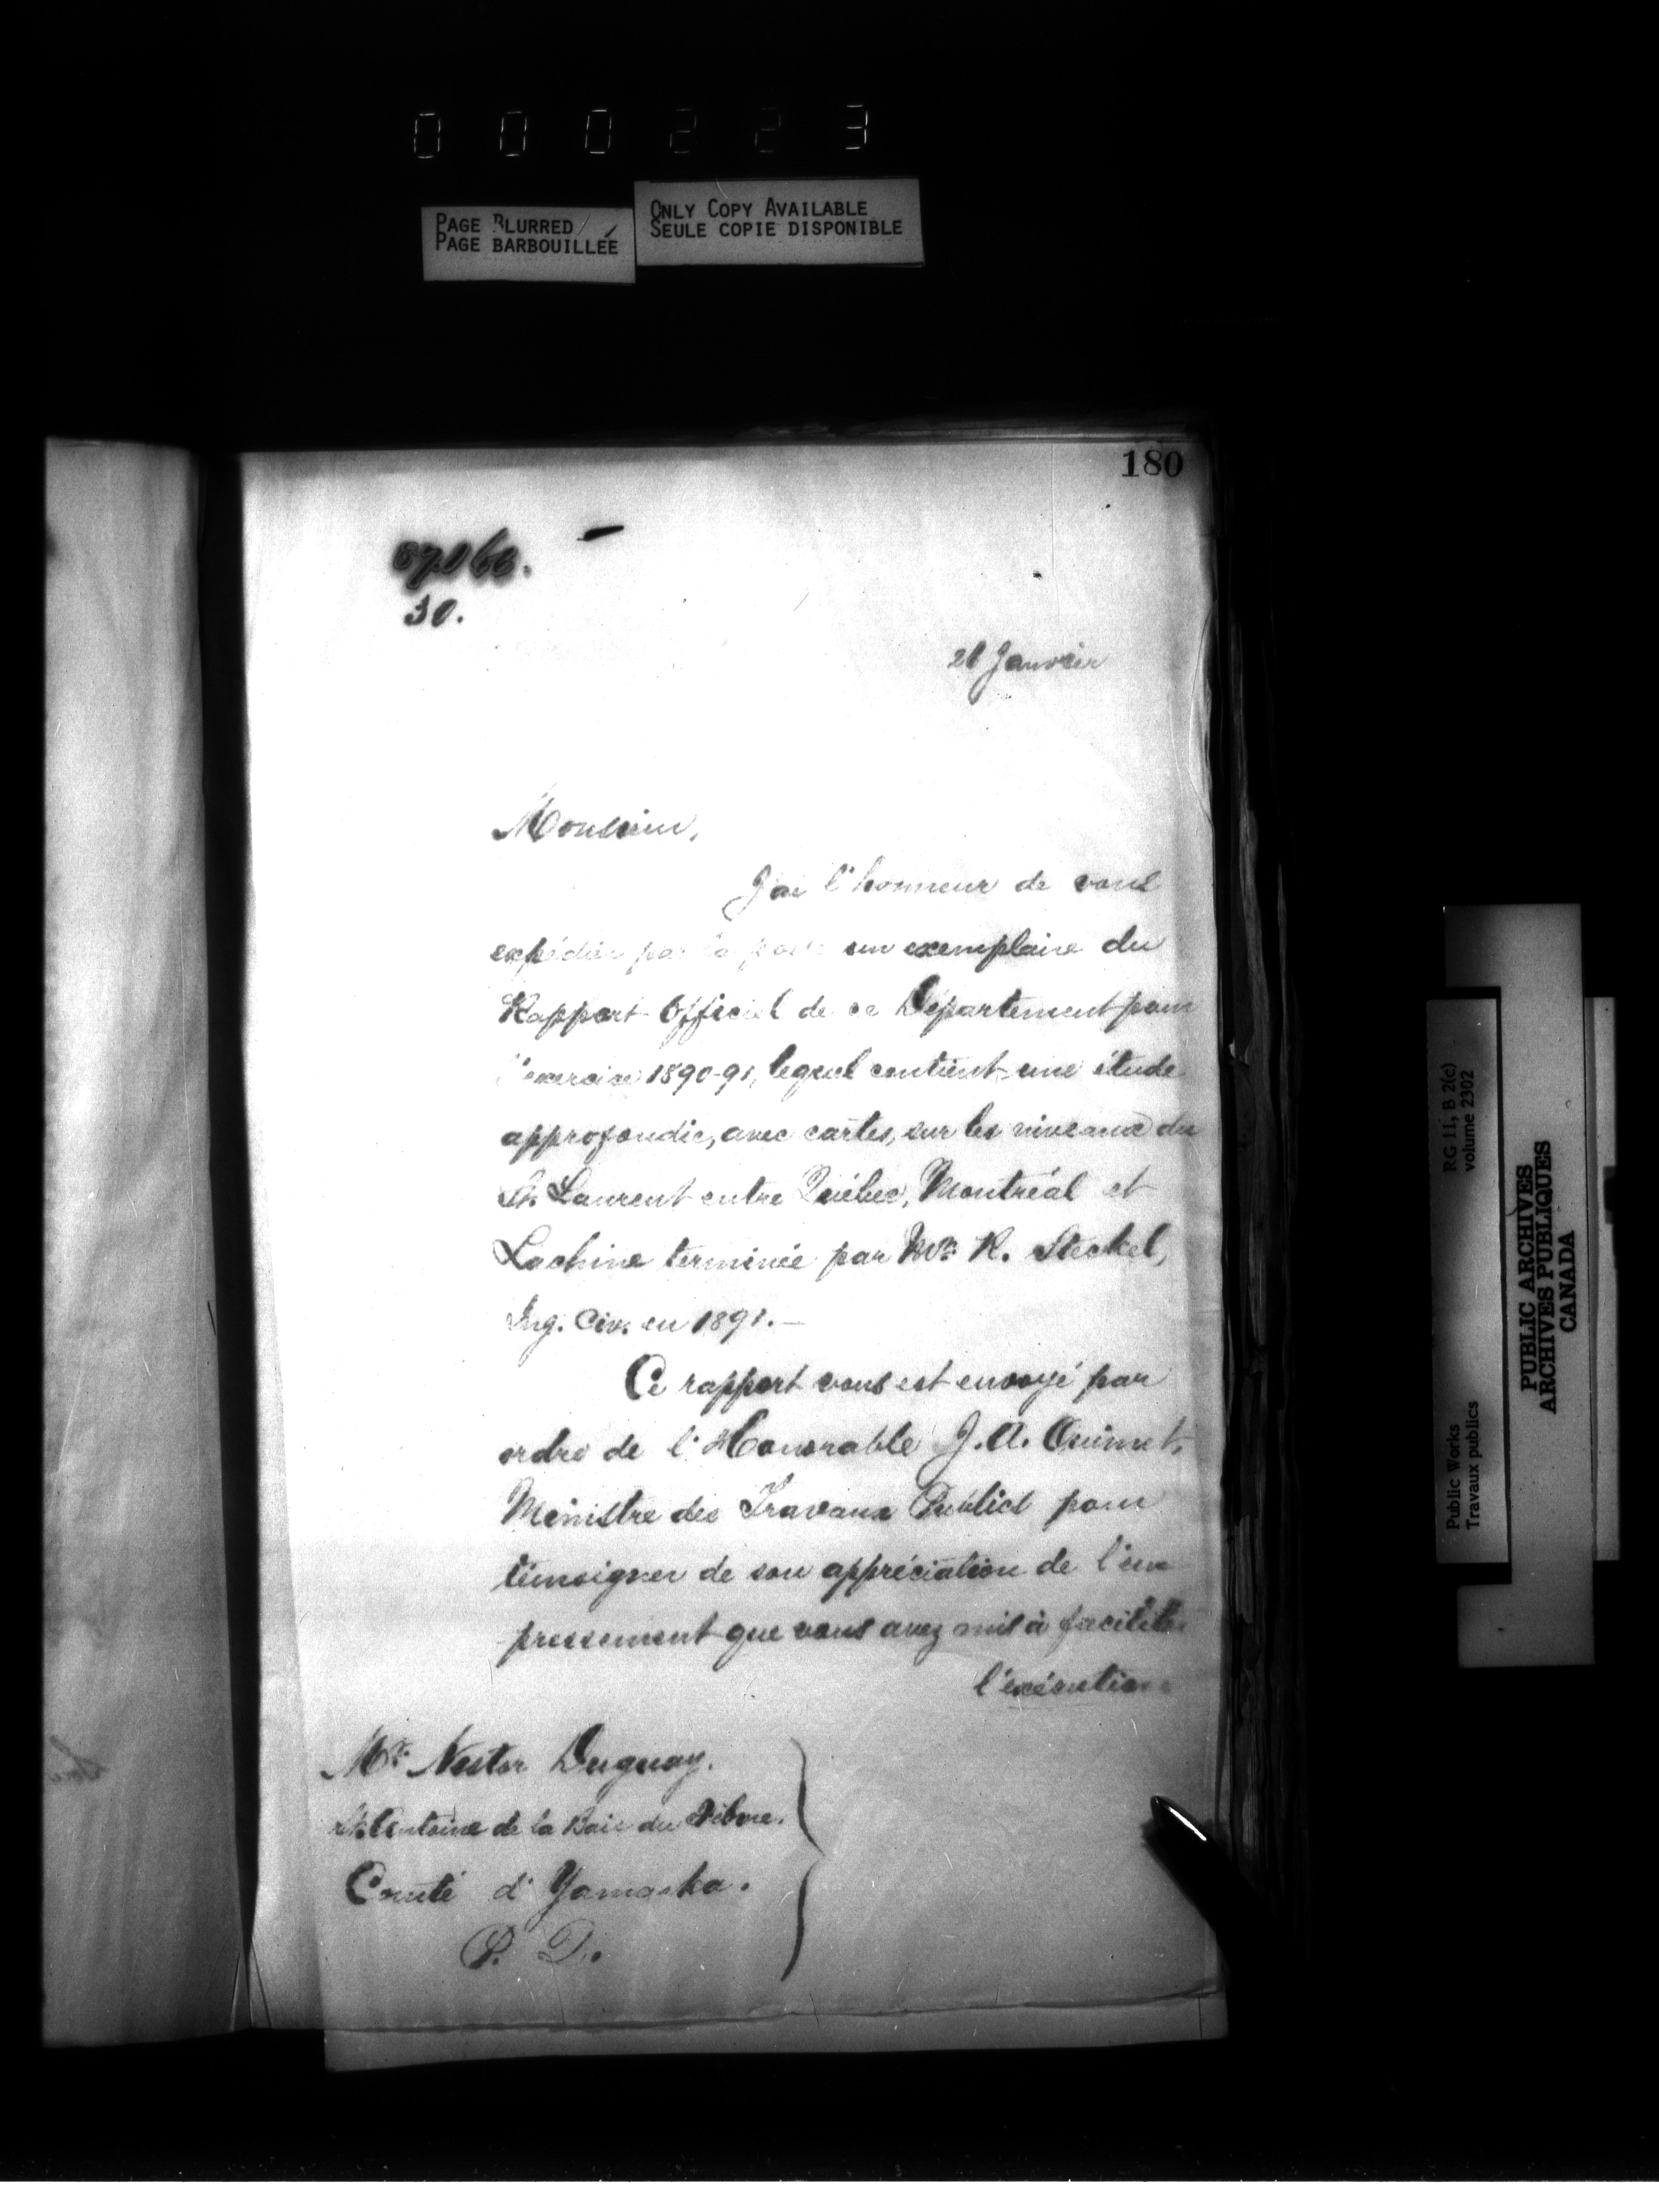 000223
PAGE BLURRED
PAGE BARBOUILLÉE
ONLY COPY AVAILABLE
SEULE COPIE DISPONIBLE
180
30.
Janvier
Monsieur,
J'ai l'honneur de vous
expédier par la poste un exemplaire du
Rapport Officiel de ce Département pour
l'exercice 1890-91, lequel contient une étude
approfondie, avec cartes, sur les niveaux du
St. Laurent entre Québec, Montréal et
Lachine terminée par Mr. R. Steckel,
Ing. Civ. en 1891.—
Ce rapport vous est envoyé par
ordre de l'Honorable J. A. Ouimet,
Ministre des Travaux Publics pour
témoigner de son appréciation de l'em
pressement que vous avez mis à faciliter
l'exécution
Mr. Nestor Duguay.
St. Antoine de la Baie du Febvre.
Comté d'Yamaska.
P. Q.
Public Works
Travaux publics
RG 11, B 2(c)
volume 2302
PUBLIC ARCHIVES
ARCHIVES PUBLIQUES
CANADA